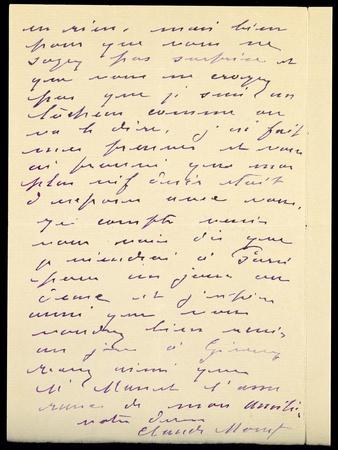 en rien, mais bien
pour que vous ne
soyez pas surprise et
que vous ne croyez
pas que je suis un
lâcheur comme on
va le dire. j'ai fait
mes preuves et vous
ai prouvé que mon
plus vif désir était
d'exposer avec vous.
Je compte
vous voir dès que
je viendrai à Paris
pour un jour ou
deux et j'espère
aussi que vous
voudrez bien venir
un jour à Giverny
recevez ainsi que
Mr Manet l'assu
rance de mon amitié
votre dévoué
Claude Monet